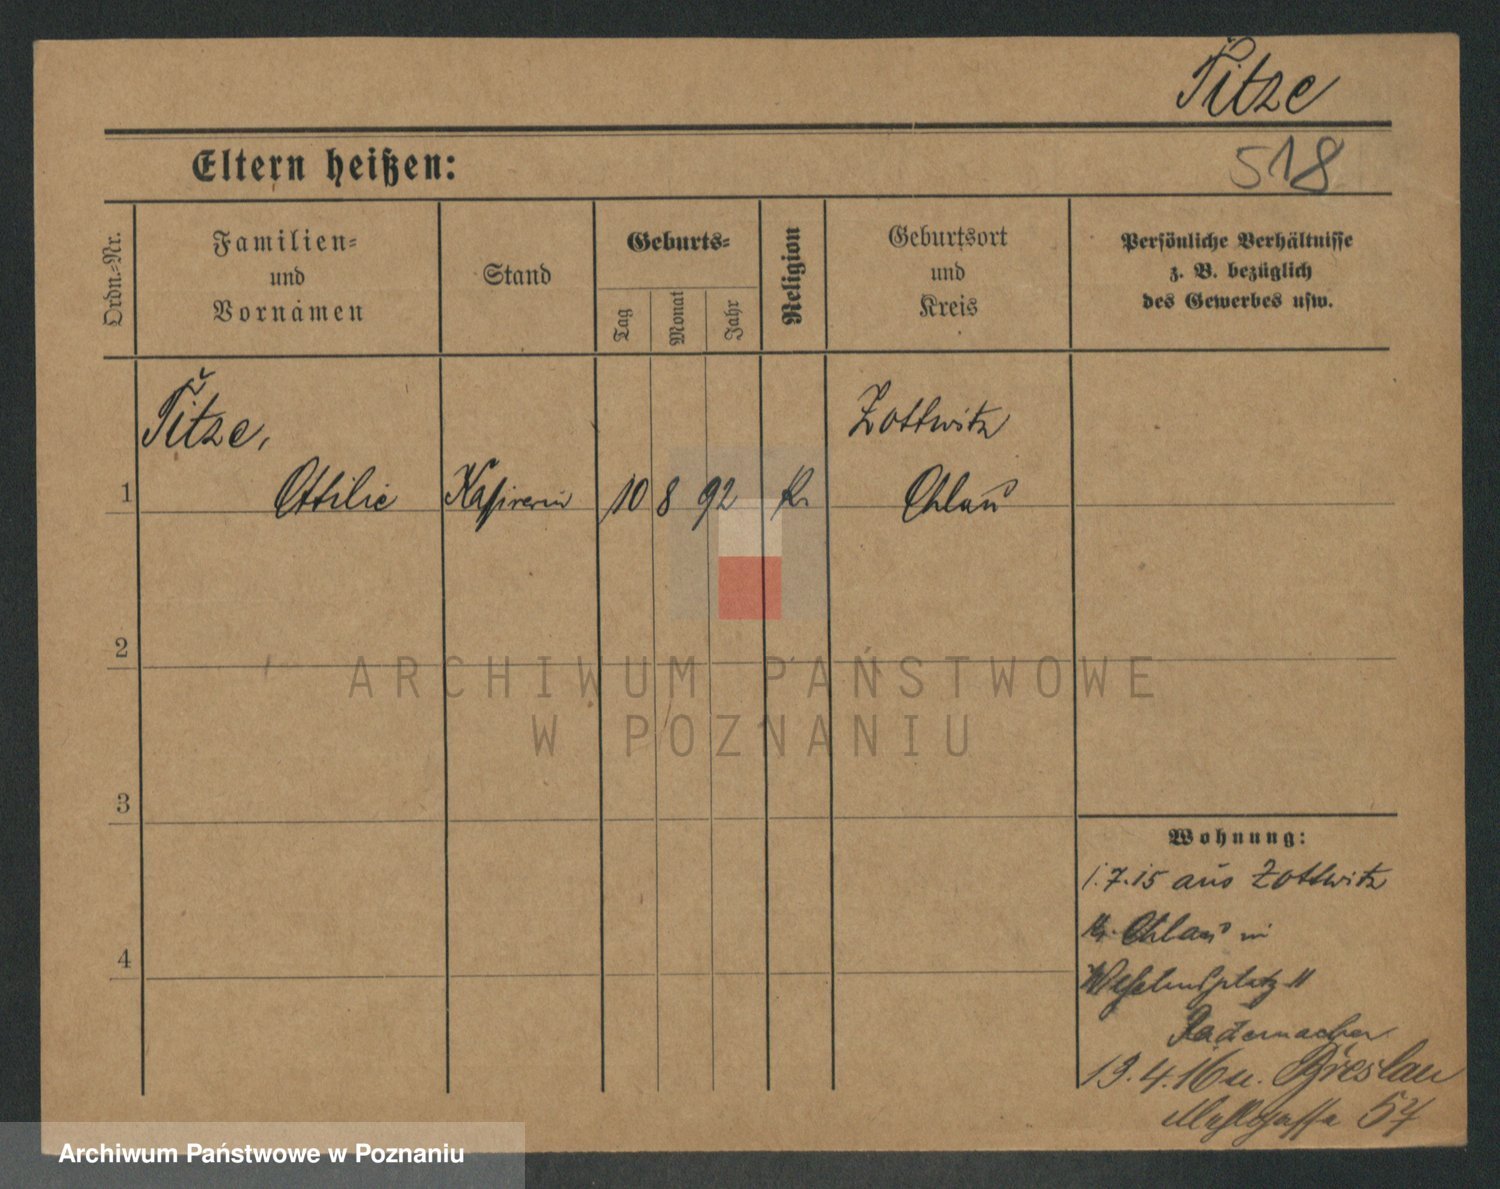 Titze
518
Eltern heißen:
Ordn.-Nr.
Familien-
und
Vornamen
Stand
Geburts-
Tag
Monat
Jahr
Religion
Geburtsort
und
Kreis
Persönliche Verhältnisse
z. B. bezüglich
des Gewerbes usw.
Titze,
Zottwitz
1
Ottilie
10
8
92
K.
Ohlau
2
ARCHIWUM PAŃSTWOWE
W POZNANIU
3
Wohnung:
1.7.15 aus Zottwitz
Kr. Ohlau in
4
Rademacher
13.4.16 n. Breslau
57
Archiwum Państwowe w Poznaniu